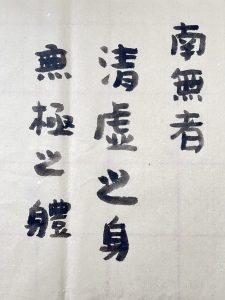 南無者
清虛之身
無極之體